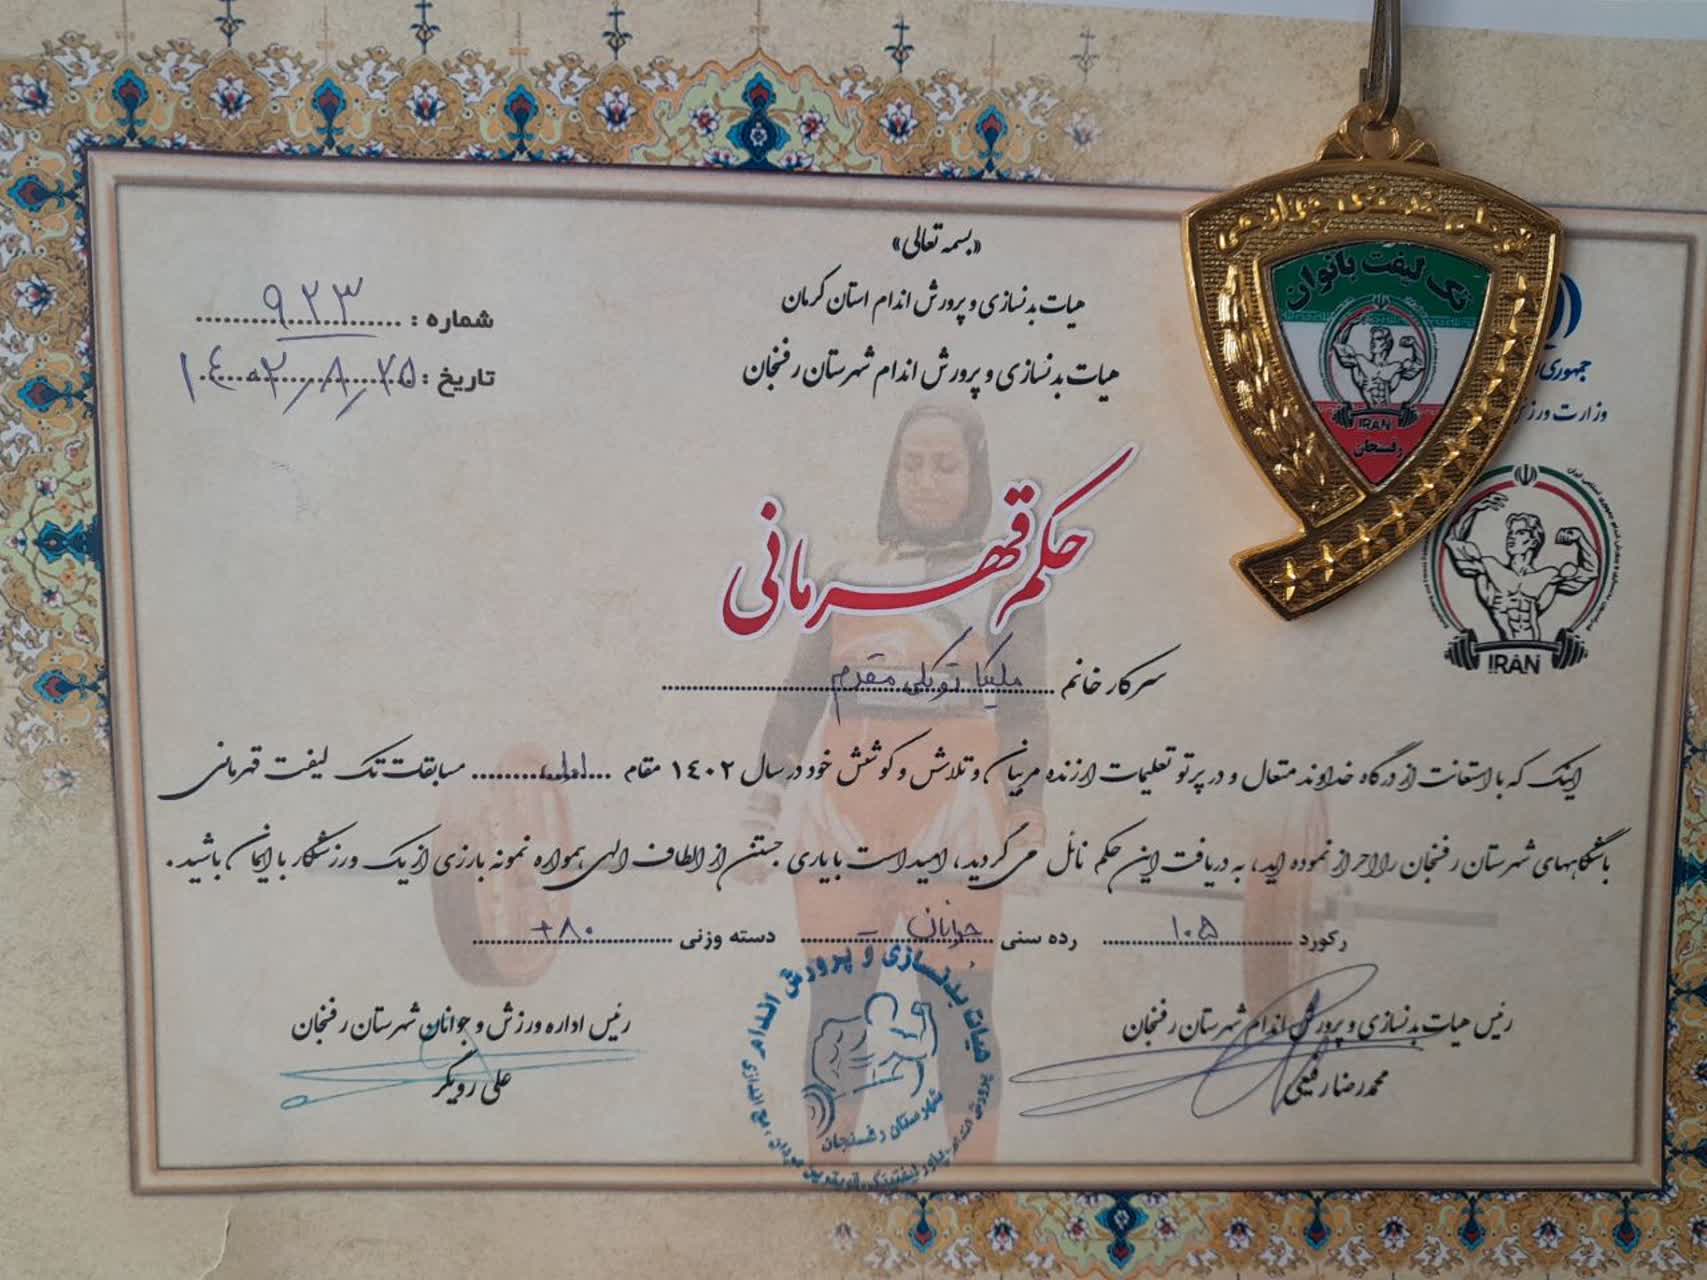 «بسمه تعالی»
هیات بدنسازی و پرورش اندام استان کرمان
هیات بدنسازی و پرورش اندام شهرستان رفنجان
شماره : ۹۲۳
تاریخ : ۱۴۰۲/۸/۲۵
تک لیفت بانوان
IRAN
رفسنجان
جمهوری
وزارت ورز
IRAN
حکم قهرمانی
سرکار خانم ملیکا توکلی مقدم
اینک که با استعانت از درگاه خداوند متعال و در پرتو تعلیمات ارزنده مربیان و تلاش و کوشش خود در سال ۱۴۰۲ مقام اول مسابقات تک لیفت قهرمانی
باشگاههای شهرستان رفنجان را احراز نموده اید، به دریافت این حکم نائل می گردید، امید است با یاری جستن از الطاف الهی همواره نمونه بارزی از یک ورزشکار با ایمان باشید.
رکورد ۱۰۵ رده سنی جوانان دسته وزنی ۸۰+
رئیس هیات بدنسازی و پرورش اندام شهرستان رفنجان
محمدرضا رفیعی
رئیس اداره ورزش و جوانان شهرستان رفنجان
علی رویگر
هیات بدنسازی و پرورش اندام
شهرستان رفسنجان